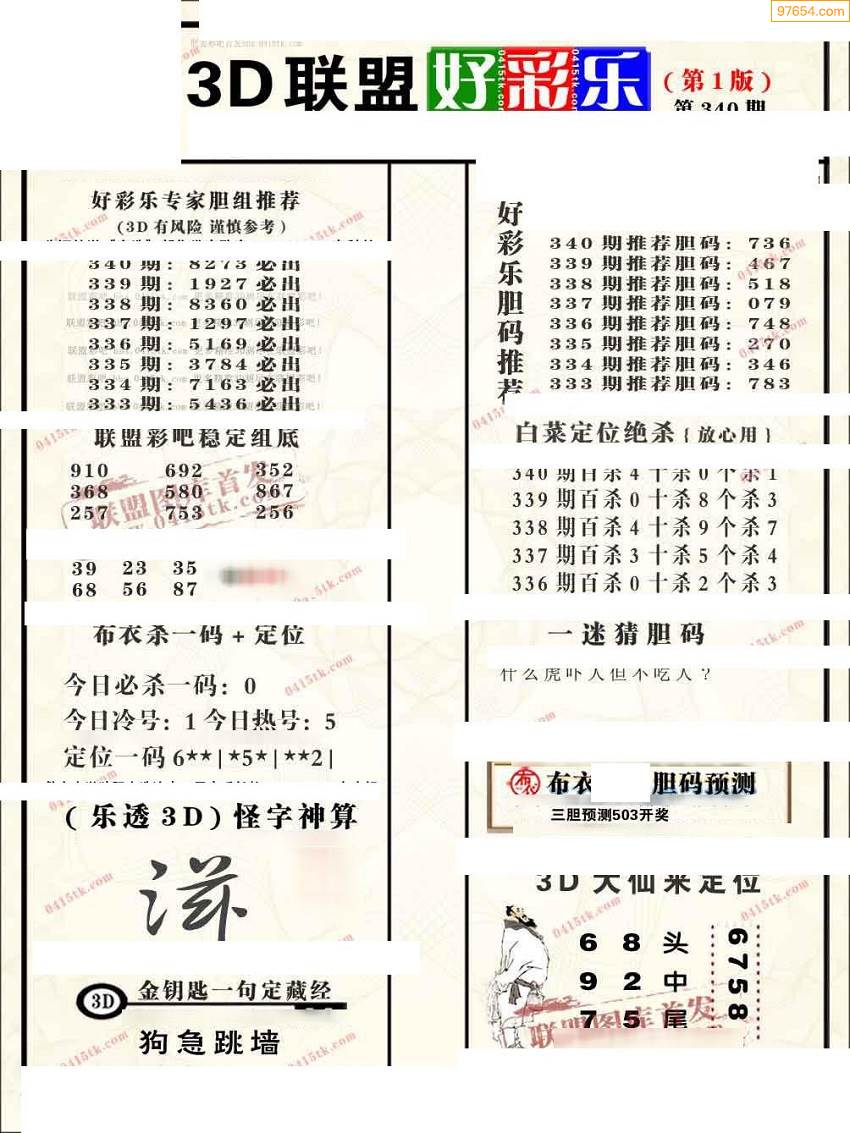 97654.com
3D联盟好彩乐(第1版)
第340期
好彩乐专家胆组推荐
(3D有风险 谨慎参考)
340期: 8273必出
339期: 1927必出
338期: 8360必出
337期: 1297必出
336期: 5169必出
335期: 3784必出
334期: 7163必出
333期: 5436必出
联盟彩吧稳定组底
910 692 352
368 580 867
257 753 256
联盟图库首发
39 23 35
68 56 87
布衣杀一码+定位
今日必杀一码: 0
今日冷号: 1 今日热号: 5
定位一码 6**|*5*|**2|
(乐透3D)怪字神算
滋
3D 金钥匙一句定藏经
狗急跳墙
好彩乐胆码推荐
340期推荐胆码: 736
339期推荐胆码: 467
338期推荐胆码: 518
337期推荐胆码: 079
336期推荐胆码: 748
335期推荐胆码: 270
334期推荐胆码: 346
333期推荐胆码: 783
白菜定位绝杀{放心用}
340期百杀4十杀0个杀1
339期百杀0十杀8个杀3
338期百杀4十杀9个杀7
337期百杀3十杀5个杀4
336期百杀0十杀2个杀3
一迷猜胆码
什么虎吓人但不吃人?
布衣 布衣 胆码预测
三胆预测503开奖
3D大仙来定位
6 8 头
9 2 中
7 5 尾
6758
联盟图库首发
0415tk.com